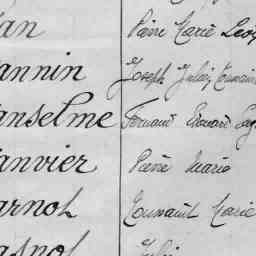 an Pierre Marie
annin Joseph Julien
anselme Fernand Edouard
anvier Pierre Marie
arnol Toussaint Marie
asnol Julien